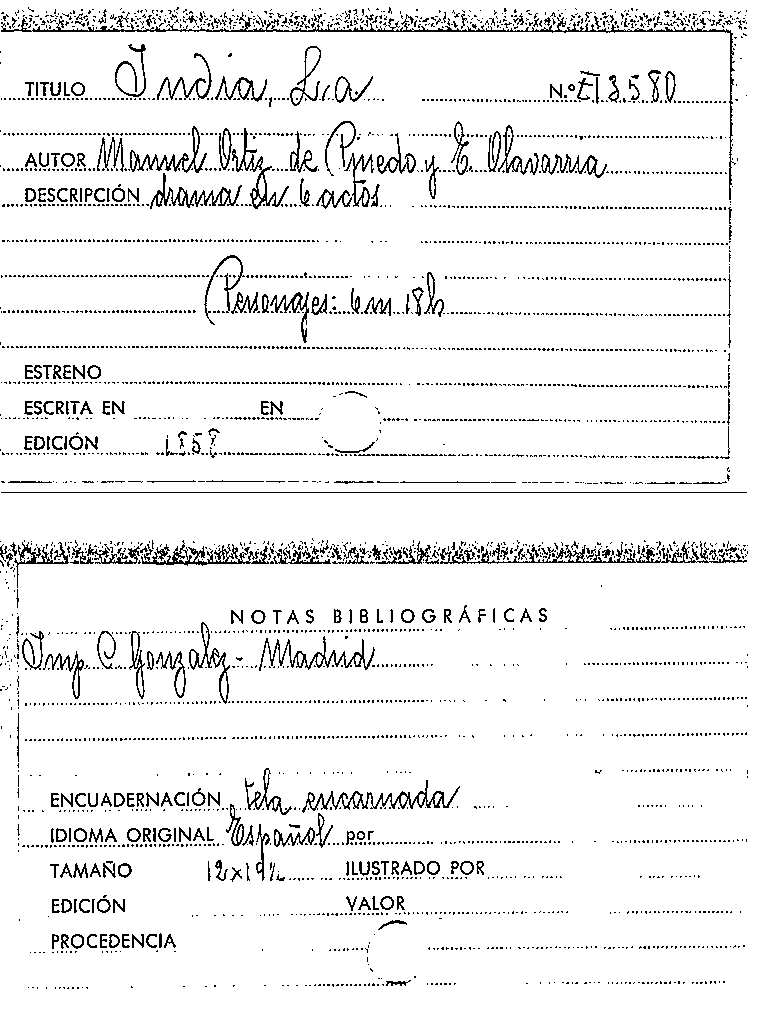 TITULO India, La N.º ET 3.580
AUTOR Manuel Ortiz de Pinedo y E. Olavarria
DESCRIPCIÓN drama en 6 actos
Personajes: 6m 18h
ESTRENO
ESCRITA EN EN
EDICIÓN 1858
NOTAS BIBLIOGRÁFICAS
Imp C Gonzalez - Madrid
ENCUADERNACIÓN tela encarnada
IDIOMA ORIGINAL Español por
TAMAÑO 12x19½ ILUSTRADO POR
EDICIÓN VALOR
PROCEDENCIA